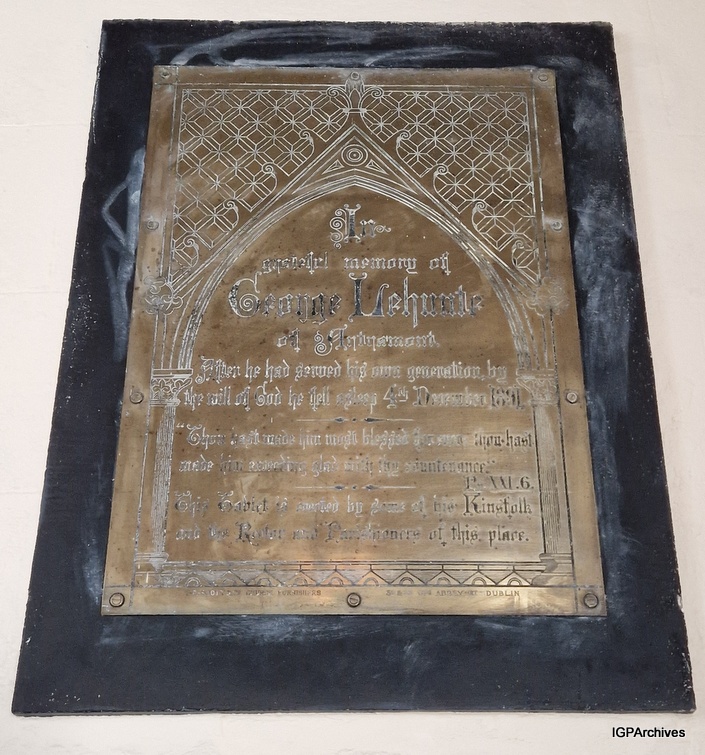 In
grateful memory of
George Lehunte
of Artramont.
After he had served his own generation, by
the will of God he fell asleep 4th December 1891.
"Thou hast made him most blessed for ever thou hast
made him exceeding glad with thy countenance."
Ps. XXI. 6.
This Tablet is erected by some of his Kinsfolk
and the Rector and Parishioners of this place.
ABBEY ST DUBLIN
IGPArchives